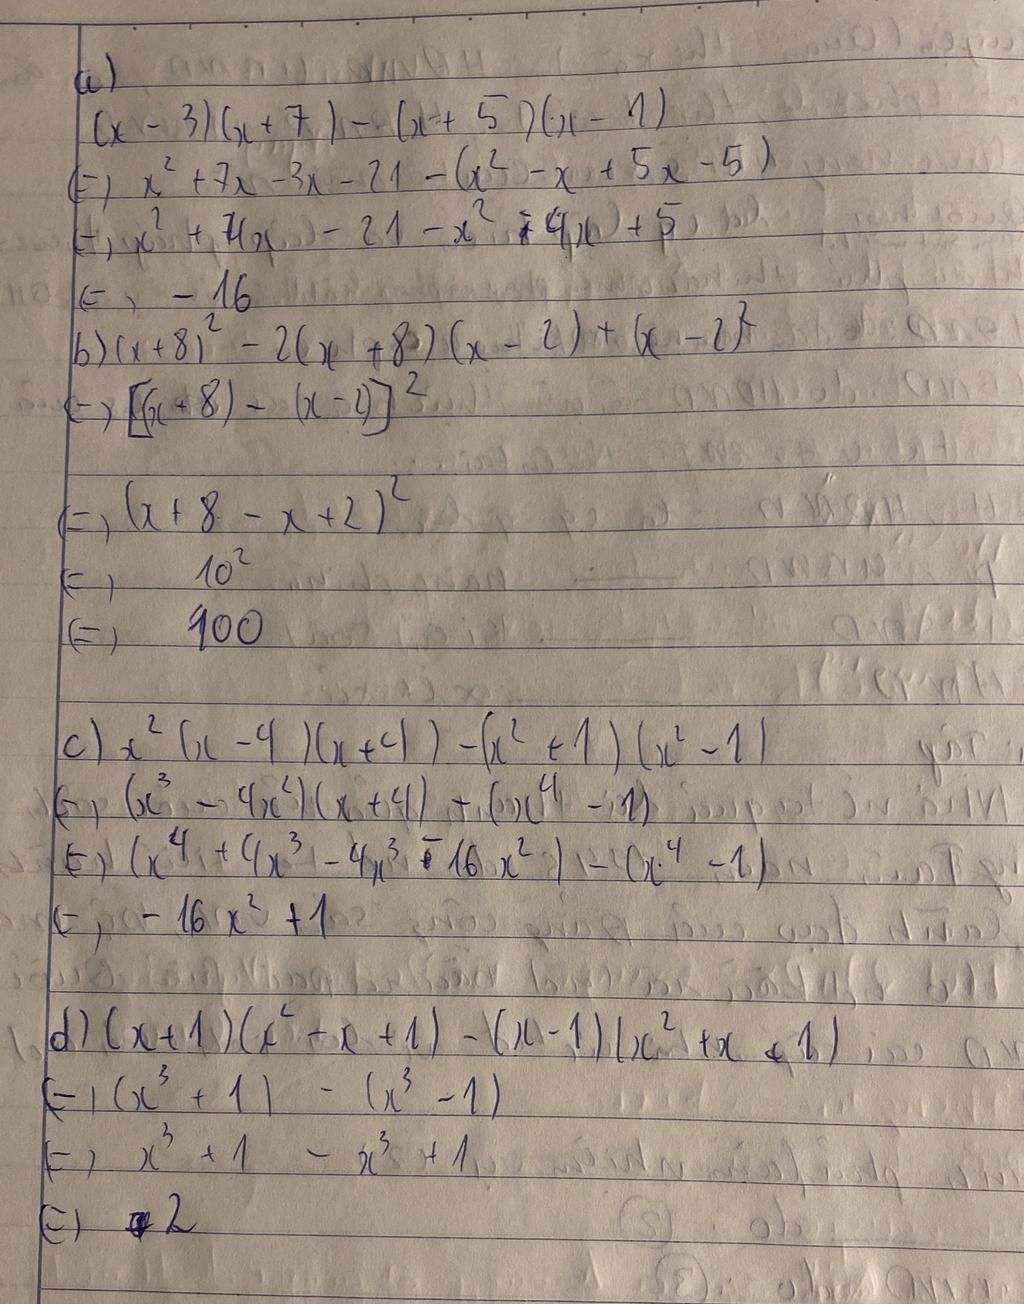 a)
(x - 3)(x + 7) - (x + 5)(x - 1)
(=) x² + 7x - 3x - 21 - (x² - x + 5x - 5)
(=) x² + 4x - 21 - x² - 4x + 5
(=) - 16
b) (x + 8)² - 2(x + 8)(x - 2) + (x - 2)²
(=) [(x + 8) - (x - 2)]²
(=) (x + 8 - x + 2)²
(=) 10²
(=) 100
c) x² (x - 4)(x + 4) - (x² + 1)(x² - 1)
(=) (x³ - 4x²)(x + 4) + (x⁴ - 1)
(=) (x⁴ + 4x³ - 4x³ - 16x²) - (x⁴ - 1)
(=) - 16x² + 1
d) (x + 1)(x² - x + 1) - (x - 1)(x² + x + 1)
(=) (x³ + 1) - (x³ - 1)
(=) x³ + 1 - x³ + 1
(=) 2